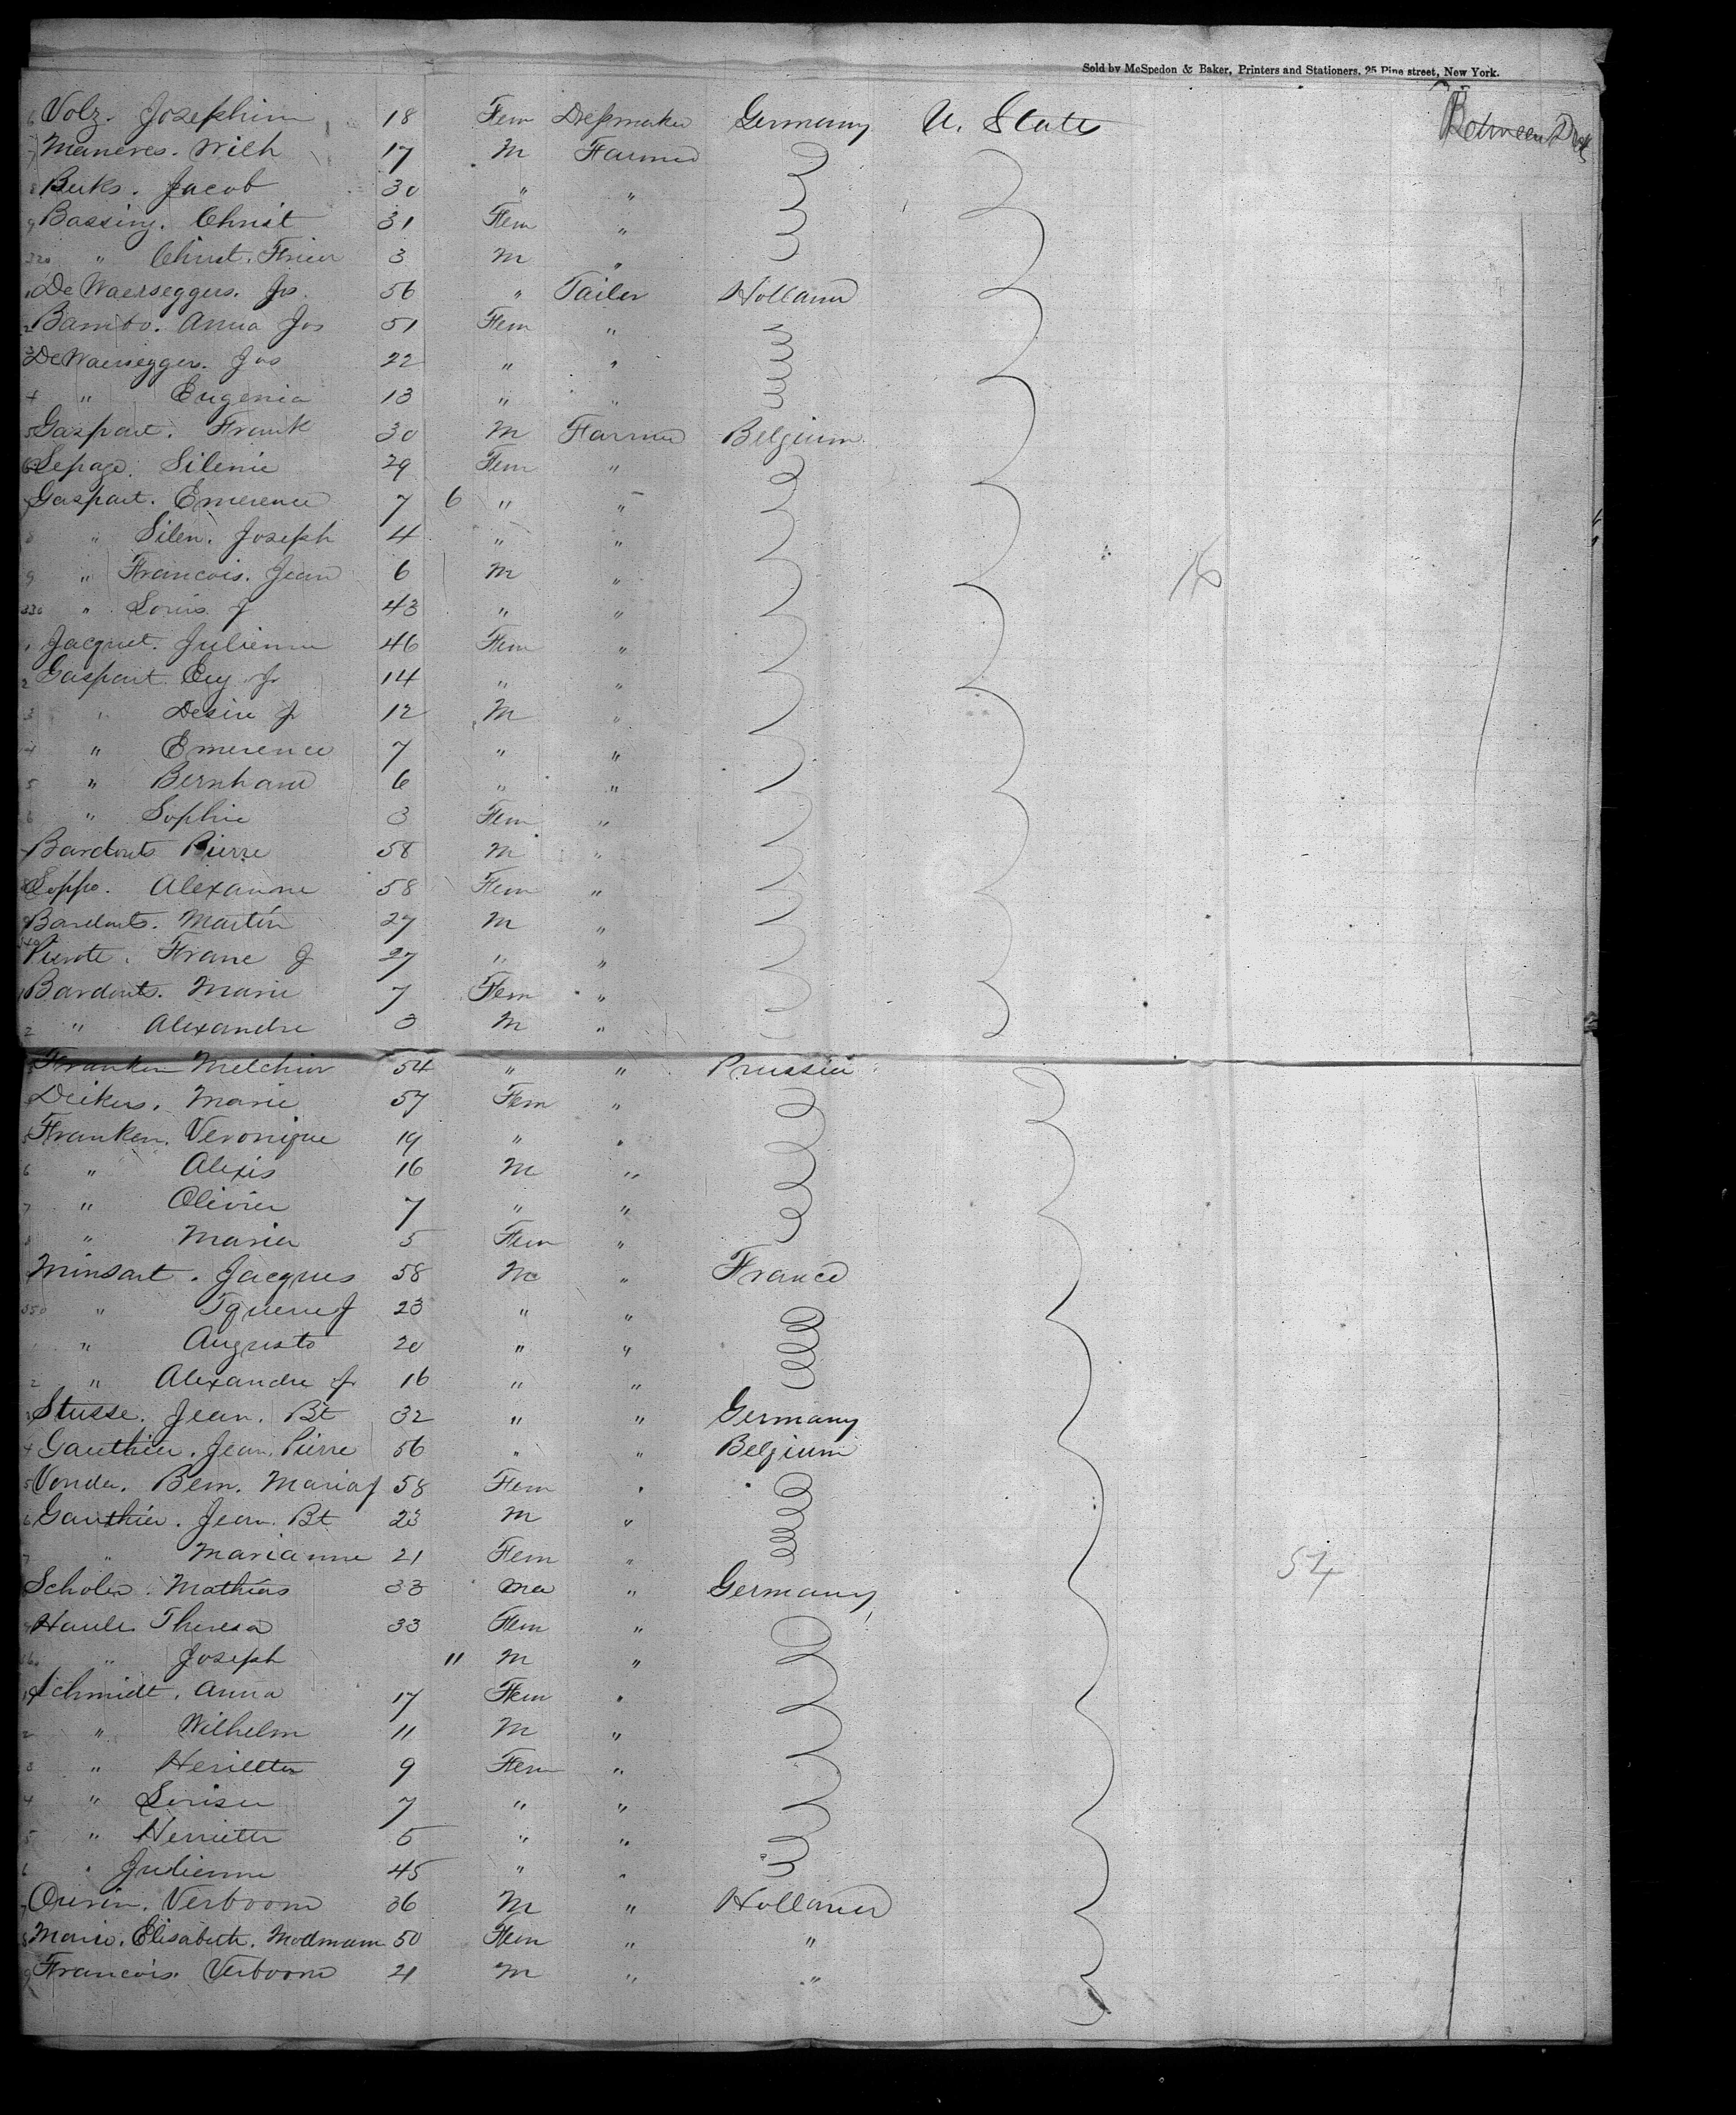 Sold by McSpedon & Baker, Printers and Stationers, 25 Pine street, New York.
6 Volz. Josephine 18 Fem Dressmaker Germany U. States Between Deck
7 Maneres. Wilh 17 M Farmer
8 Berks. Jacob 30 " "
9 Bassing. Christ 31 Fem "
320 " Christ. 3 M "
1 De Waerseggers. Jos. 56 " Tailor Holland
2 Bambo. Anna Jos 51 Fem "
3 De Waerseggers. Jos 22 " "
4 " Eugenia 13 " "
5 Gaspart. Frank 30 M Farmer Belgium
6 Lepage. Silenie 29 Fem "
7 Gaspart. Emerence 7 6 " "
8 " Silen. Joseph 4 " "
9 " Francois. Jean 6 M "
330 " Louis. J 43 " "
1 Jacquet. Julienne 46 Fem "
2 Gaspart Eug. J 14 " "
3 " Desire J 12 M "
4 " Emerence 7 " "
5 " Bernhard 6 " "
6 " Sophie 3 Fem "
7 Bardouts Pierre 58 M "
8 Alexanne 58 Fem "
9 Bardouts. Martin 27 M "
340 Franc J 27 " "
1 Bardouts. Marie 7 Fem "
2 " Alexandre 3 M "
3 Franken Melchior 54 " " Prussia
4 Deikers. Marie 57 Fem "
5 Franken. Veronique 19 " "
6 " Alexis 16 M "
7 " Olivier 7 " "
8 " Maria 5 Fem "
9 Minsart. Jacques 58 M " France
350 " 23 " "
1 " Augusto 20 " "
2 " Alexandre J 16 " "
3 Stusse. Jean. Bt 32 " " Germany
4 Gauthier. Jean. Pierre 56 " " Belgium
5 Vonder. Bem. Maria J 58 Fem "
6 Gauthier. Jean. Bt 23 M "
7 " Marianne 21 Fem "
54
8 Scholer. Mathias 33 Ma " Germany
9 Haule. Theresa 33 Fem "
360 " Joseph 11 M "
1 Schmidt. Anna 17 Fem "
2 " Wilhelm 11 M "
3 " 9 Fem "
4 " Louisa 7 " "
5 " 5 " "
6 " Julienne 45 " "
7 Verboom 36 M " Holland
8 Marie. Elisabeth. Modmam 50 Fem " "
9 Francois. Verboom 21 M " "